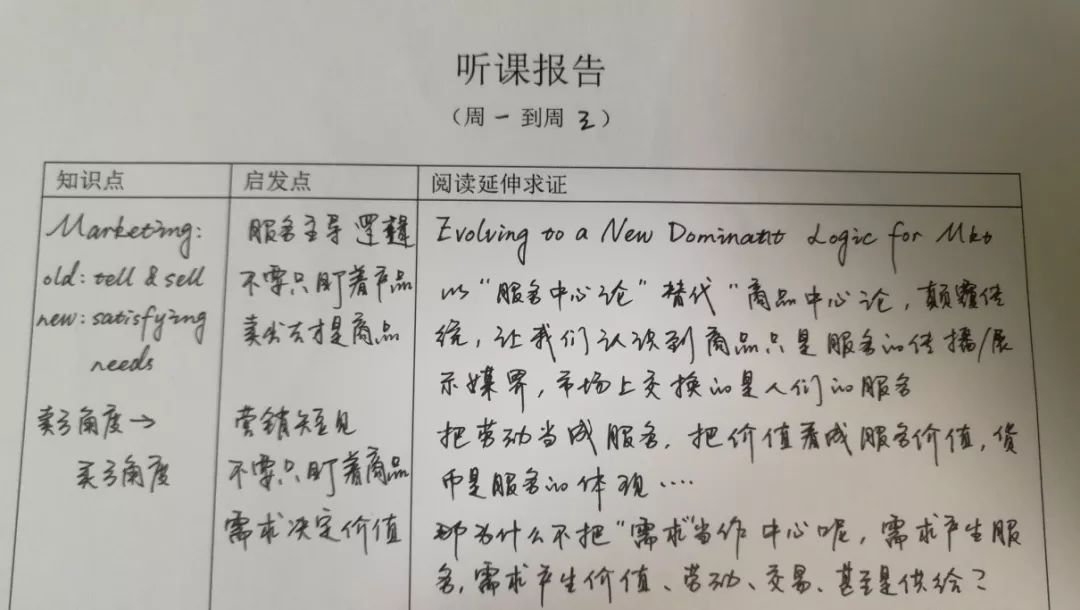 听课报告
（周一到周三）
知识点
启发点
阅读延伸求证
Marketing:
old: tell & sell
new: satisfying
needs
卖方角度→
买方角度
服务主导逻辑
不要只盯着产品
卖出去才是商品
营销短见
不要只盯着商品
需求决定价值
Evolving to a New Dominant Logic for Mkt
以“服务中心论”替代“商品中心论，颠覆传
统，让我们认识到商品只是服务的传播/展
示媒界，市场上交换的是人们的服务
把劳动当成服务，把价值看成服务价值，货
币是服务的体现....
那为什么不把“需求”当作中心呢，需求产生服
务，需求产生价值、劳动、交易、甚至是供给？